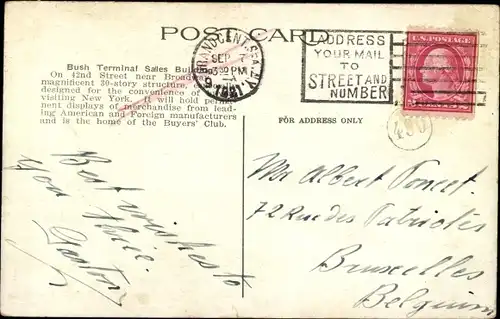 POST CARD
Bush Terminal Sales Building
On 42nd Street near Broadway
magnificent 30-story structure,
designed for the convenience of
visiting New York. It will hold perma-
nent displays of merchandise from lead-
ing American and Foreign manufacturers
and is the home of the Buyers' Club.
GRAND CENT. STA. N.Y.
SEP 7
3 30 PM
1921
ADDRESS
YOUR MAIL
TO
STREET AND
NUMBER
U.S. POSTAGE
FOR ADDRESS ONLY
Best wishes to
you three
Gaston
Mr Albert Poncet
72 Rue des Patriotes
Bruxelles
Belgium